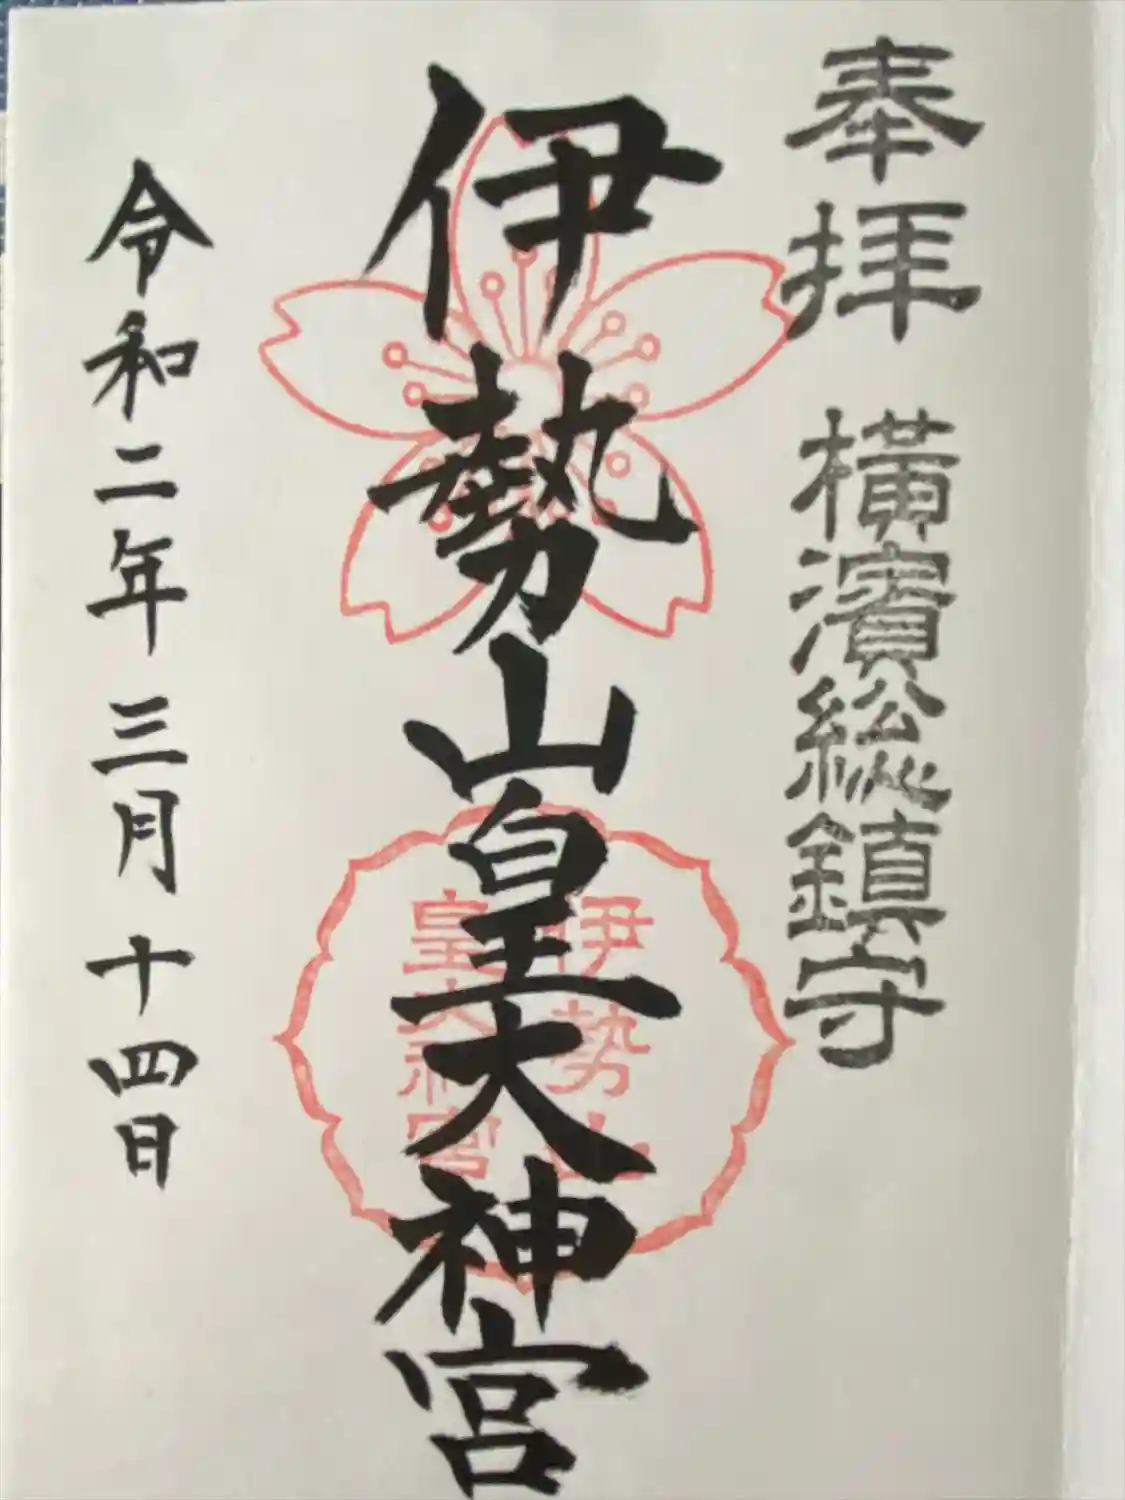 奉拝 横濱総鎮守
伊勢山皇大神宮
伊勢山
皇大神宮
令和二年三月十四日